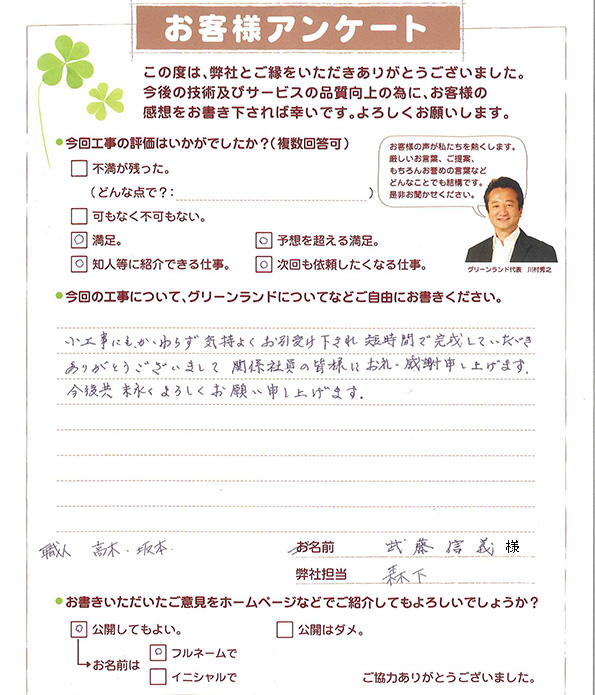 お客様アンケート
この度は、弊社とご縁をいただきありがとうございました。
今後の技術及びサービスの品質向上の為に、お客様の
感想をお書き下されば幸いです。よろしくお願いします。
今回工事の評価はいかがでしたか？（複数回答可）
不満が残った。
（どんな点で？：　　　）
可もなく不可もない。
満足。　予想を超える満足。
知人等に紹介できる仕事。　次回も依頼したくなる仕事。
お客様の声が私たちを熱くします。
厳しいお言葉、ご提案、
もちろんお誉めの言葉など
どんなことでも結構です。
是非お聞かせください。
グリーンランド代表　川村秀之
今回の工事について、グリーンランドについてなどご自由にお書きください。
小工事にもかゝわらず気持よくお引受け下され 短時間で完成していたゞき
ありがとうございまして 関係社員の皆様にお礼・感謝申し上げます.
今後共 末永くよろしくお願い申し上げます.
職人　高木・坂本　お名前　武藤信義 様
弊社担当　森下
お書きいただいたご意見をホームページなどでご紹介してもよろしいでしょうか？
公開してもよい。　公開はダメ。
お名前は　フルネームで
イニシャルで　ご協力ありがとうございました。